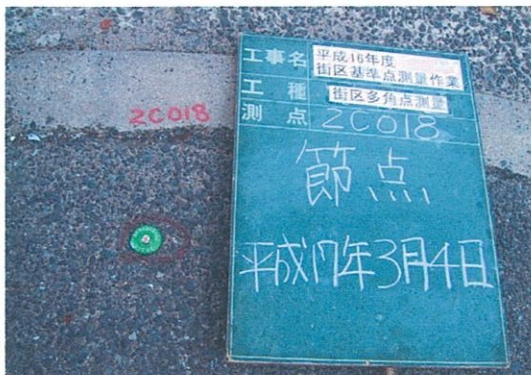 2C018
工事名 平成16年度
街区基準点測量作業
工種 街区多角点測量
測点 2C018
節点
平成17年3月4日